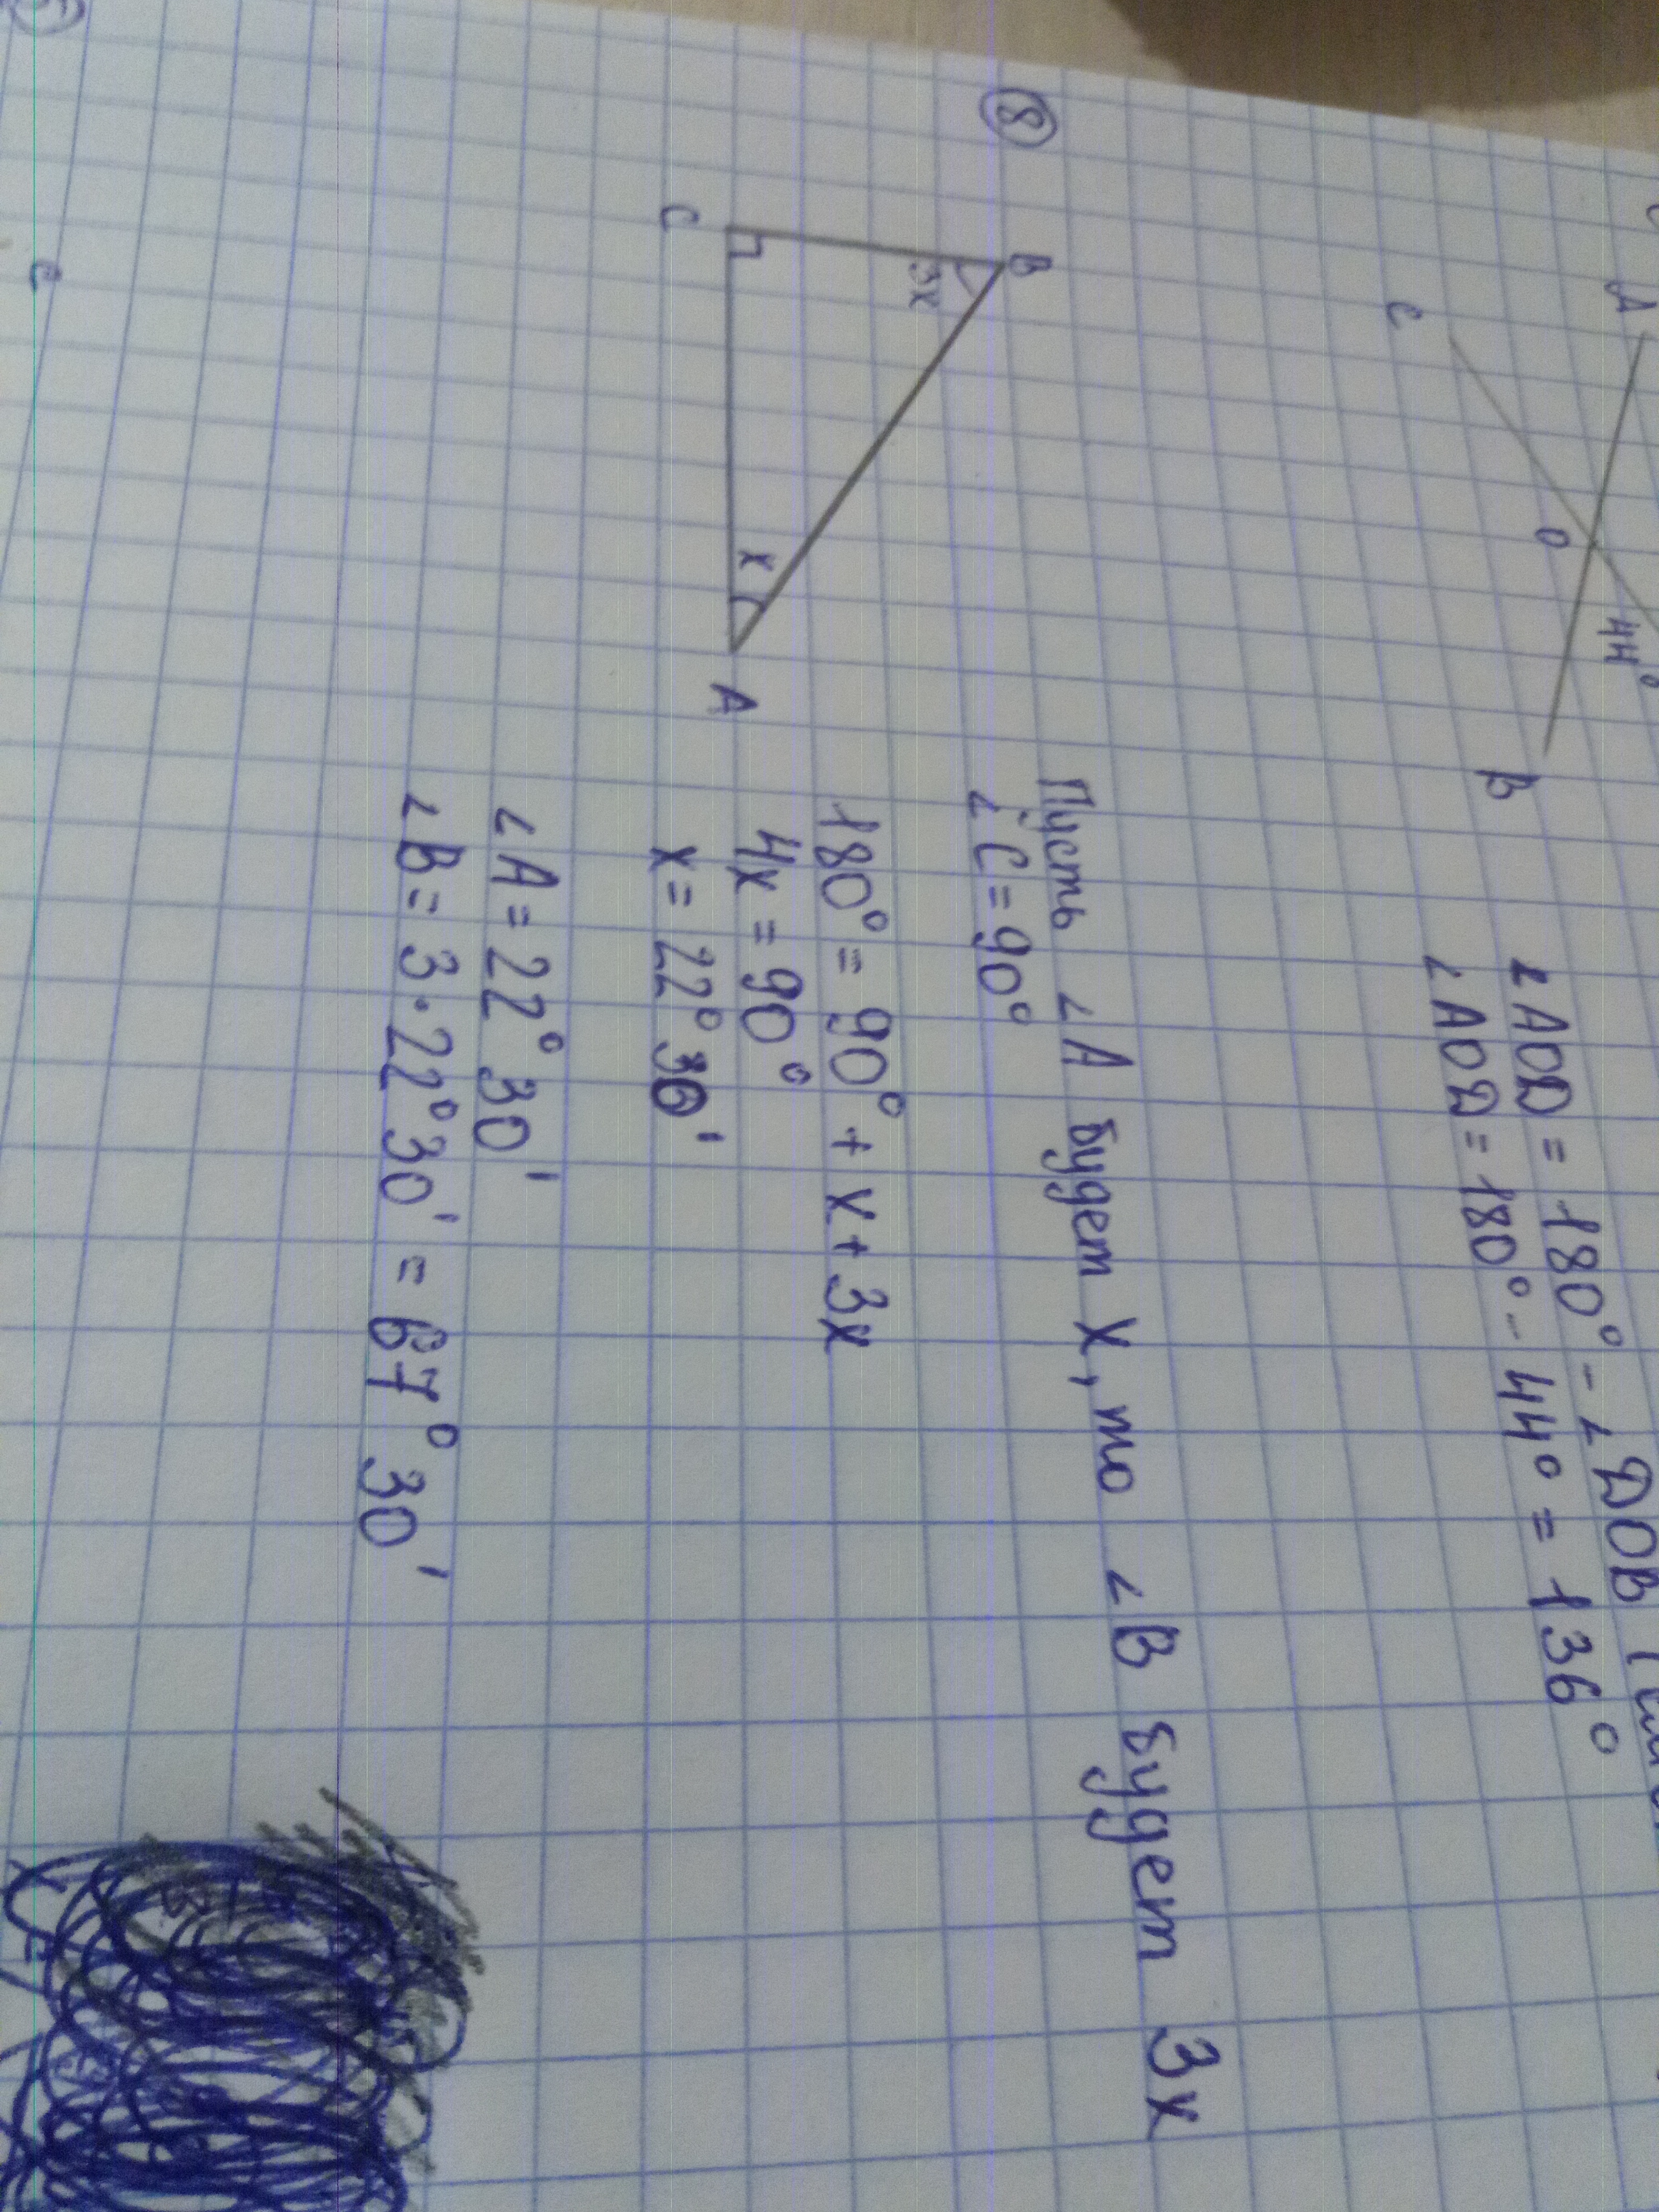 A
C
O
44°
B
∠AOD = 180° - ∠DOB
∠AOD = 180° - 44° = 136°
8
B
3x
C
x
A
Пусть ∠A будет x, то ∠B будет 3x
∠C = 90°
180° = 90° + x + 3x
4x = 90°
x = 22° 30'
∠A = 22° 30'
∠B = 3 · 22° 30' = 67° 30'